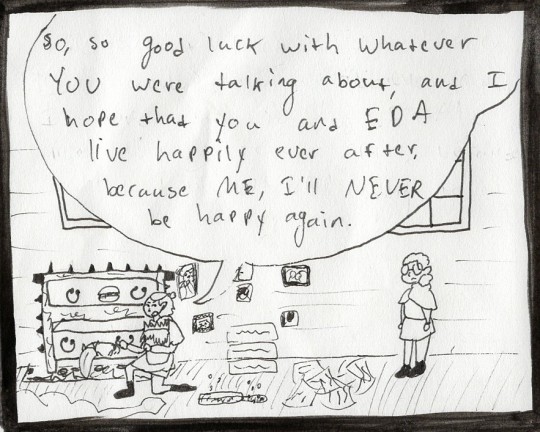 So, so good luck with whatever
YOU were talking about, and I
hope that you and EDA
live happily ever after,
because ME, I'll NEVER
be happy again.